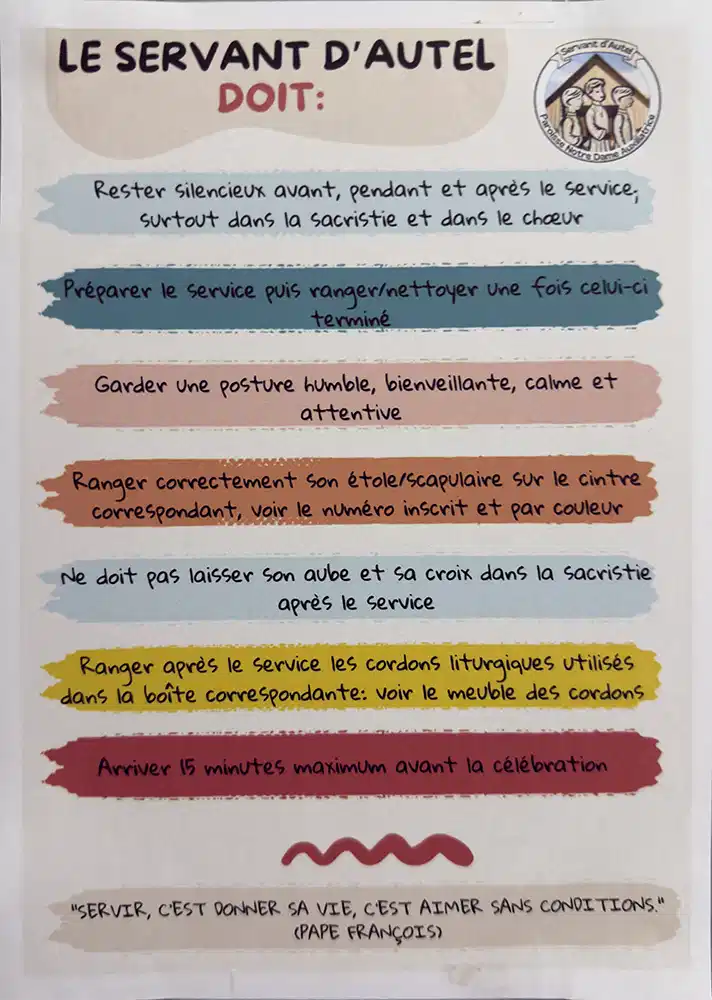 LE SERVANT D'AUTEL
DOIT:
Servant d'Autel
Paroisse Notre Dame Auxiliatrice
Rester silencieux avant, pendant et après le service,
surtout dans la sacristie et dans le chœur
Préparer le service puis ranger/nettoyer une fois celui-ci
terminé
Garder une posture humble, bienveillante, calme et
attentive
Ranger correctement son étole/scapulaire sur le cintre
correspondant, voir le numéro inscrit et par couleur
Ne doit pas laisser son aube et sa croix dans la sacristie
après le service
Ranger après le service les cordons liturgiques utilisés
dans la boîte correspondante: voir le meuble des cordons
Arriver 15 minutes maximum avant la célébration
"SERVIR, C'EST DONNER SA VIE, C'EST AIMER SANS CONDITIONS."
(PAPE FRANÇOIS)